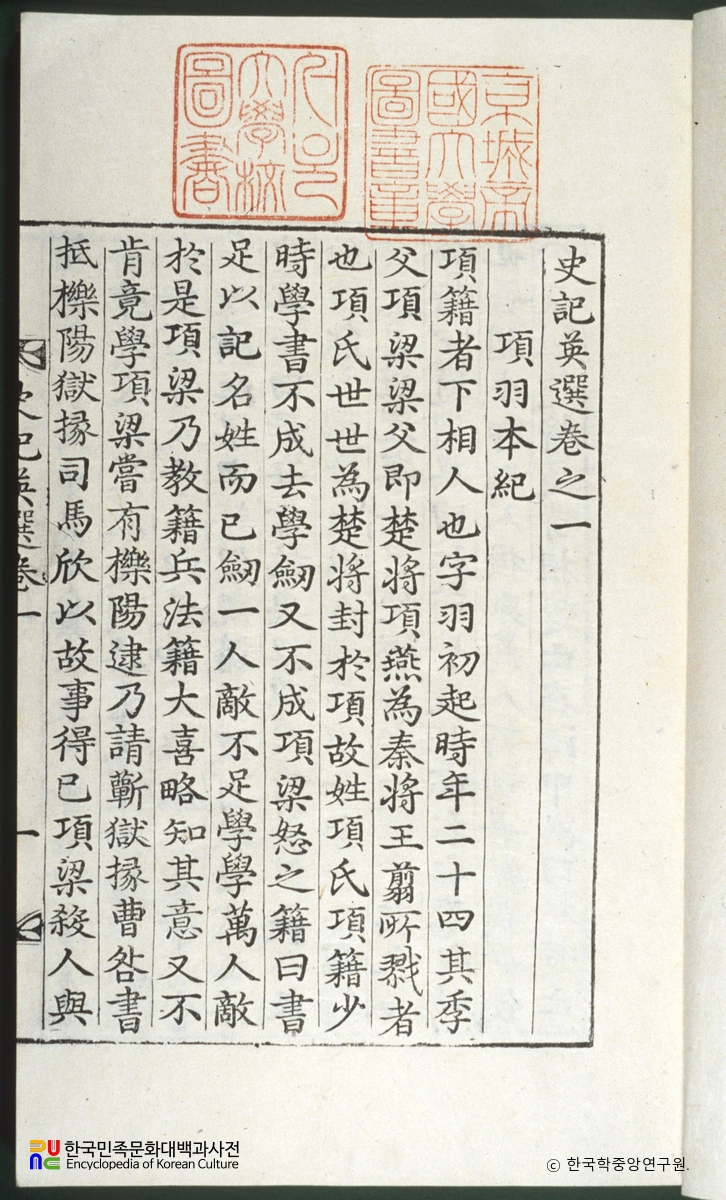 京城帝
國大學
圖書章
大學校
圖書
史記英選卷之一
項羽本紀
項籍者下相人也字羽初起時年二十四其季
父項梁梁父即楚將項燕為秦將王翦所戮者
也項氏世世為楚將封於項故姓項氏項籍少
時學書不成去學劒又不成項梁怒之籍曰書
足以記名姓而已劒一人敵不足學學萬人敵
於是項梁乃教籍兵法籍大喜略知其意又不
肯竟學項梁嘗有櫟陽逮乃請蘄獄掾曹咎書
抵櫟陽獄掾司馬欣以故事得已項梁殺人與
史記英選卷一
一
한국민족문화대백과사전
Encyclopedia of Korean Culture
ⓒ 한국학중앙연구원.